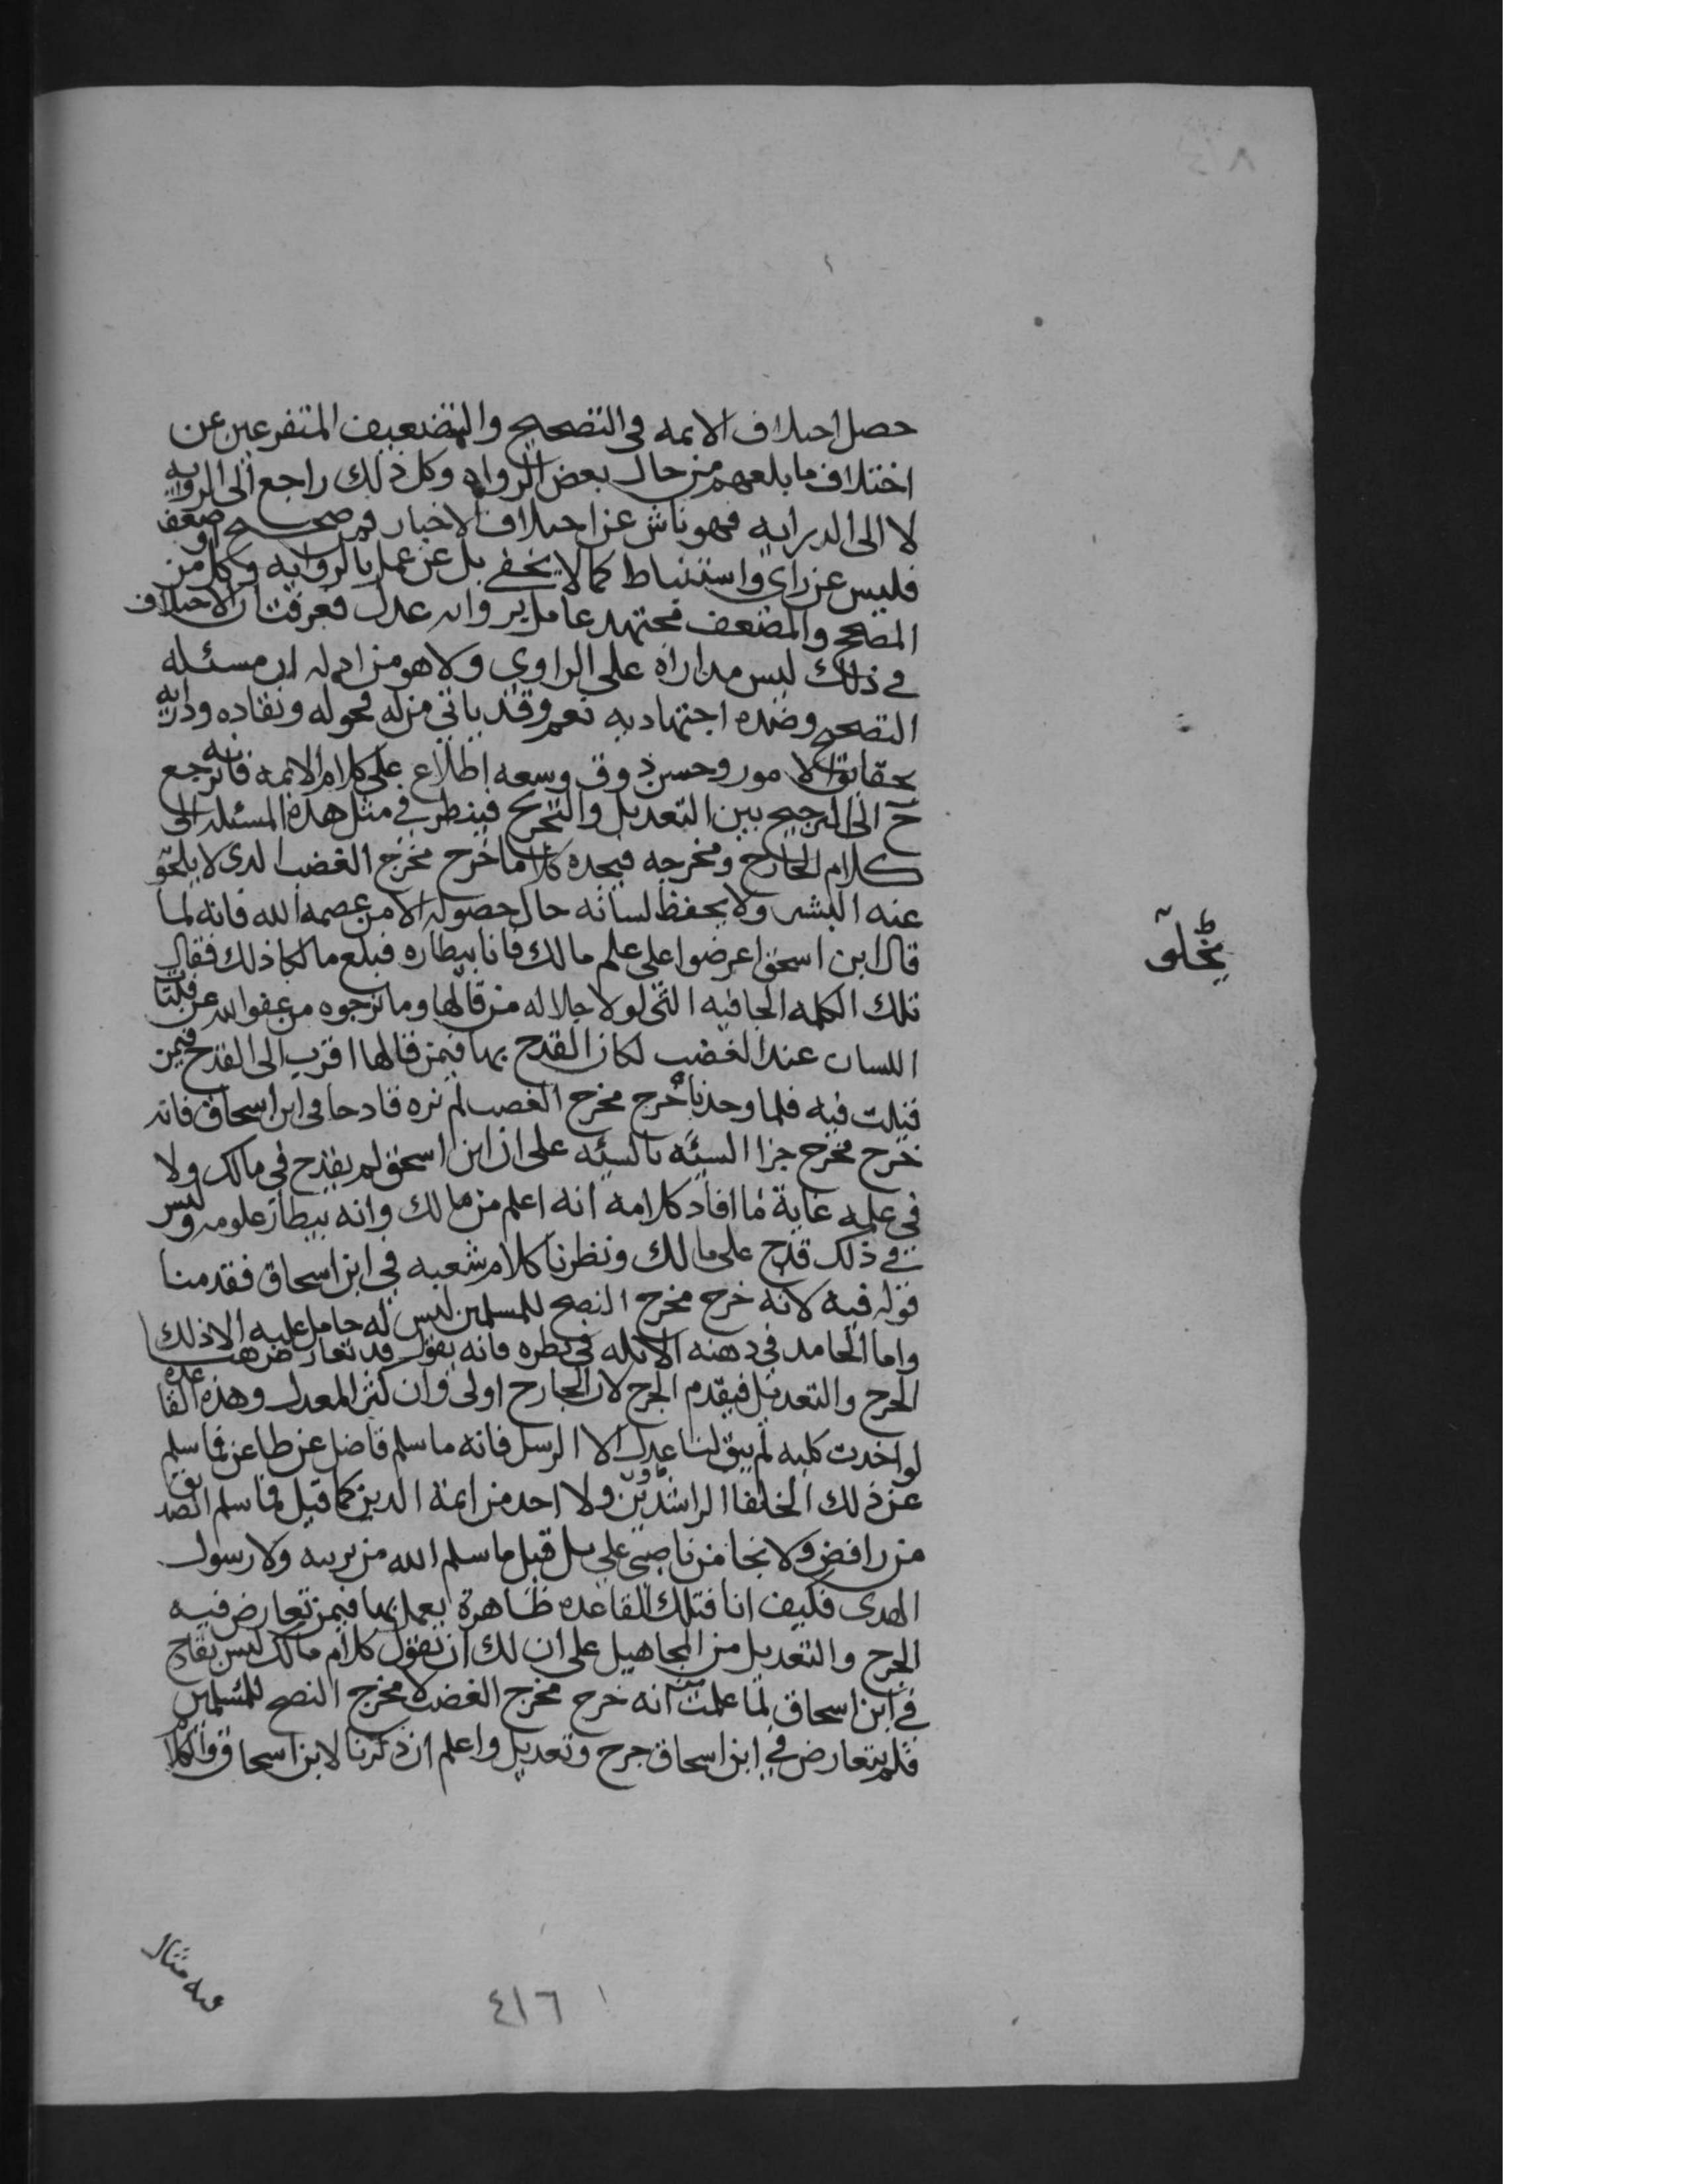 حصل اختلاف الايمه في التصحيح والتضعيف المتفرعين عن
اختلاف ما بلغهم من حال بعض الرواه وكل ذلك راجع الى الروايه
لا الى الدرايه فهو ناش عن اختلاف الاخبار فمن صحح او ضعف
فليس عن راى واستنباط كما لا يخفى بل عن عمل بالروايه وكل من
المصحح والمضعف مجتهد عامل بروايه عدل فعرفت ان الاختلاف
في ذلك ليس مداراه على الراوى ولا هو من ادله ان مسئله
التصحيح وضده اجتهاديه نعم وقد ياتي من له فحوله ونقاده ودرايه
بحقايق الامور وحسن ذوق وسعه اطلاع على كلام الايمه فانه يرجع
ح الى الترجيح بين التعديل والتجريح فينظر في مثل هذه المسئله الى
كلام الجارح ومخرجه فيجده كلاما خرج مخرج الغضب الدى لا يخلو
عنه البشر ولا يحفظ لسانه حال حصوله الا من عصمه الله فانه لما
قال ابن اسحق اعرضوا على علم مالك فانا بيطاره فبلغ مالكا ذلك فقال
تلك الكلمه الجافيه التي لولا جلاله من قالها وما نرجوه من عفو الله عن فلتات
اللسان عند الغضب لكان القدح بها فيمن قالها اقرب الى القدح فيمن
قيلت فيه فلما وجدناه خرج مخرج الغضب لم نره قادحا في ابن اسحاق فانه
خرج مخرج جزا السيئه بالسيئه على ان ابن اسحق لم يقدح في مالك ولا
في علمه غاية ما افاد كلامه انه اعلم من مالك وانه بيطار علومه وليس
في ذلك قدح على مالك ونظرنا كلام شعبه في ابن اسحاق فقدمنا
قوله فيه لانه خرج مخرج النصح للمسلمين ليس له حامل عليه الا ذلك
واما الجامد في ذهنه الابله في نظره فانه يقول قد تعارض هنا
الجرح والتعديل فيقدم الجرح لان الجارح اولى وان كثر المعدل وهذه القاعده
لو اخذت كليه لم يبق لنا عدل الا الرسل فانه ما سلم فاضل عن طاعن فما سلم
عن ذلك الخلفا الراشدون ولا احد من ايمة الدين كما قيل فما سلم الصديق
من رافض ولا نجا من ناصبي علي بل قيل ما سلم الله من بريته ولا رسول
الهدى فكيف انا فتلك القاعده ظاهرة يعمل بها فيمن تعارض فيه
الجرح والتعديل من المجاهيل على ان لك ان تقول كلام مالك ليس بقادح
في ابن اسحاق لما علمت من انه خرج مخرج الغضب لا مخرج النصح للمسلمين
فلم يتعارض في ابن اسحاق جرح وتعديل واعلم ان ذكرنا لابن اسحاق والكلام
عيه مثال
٤١٦